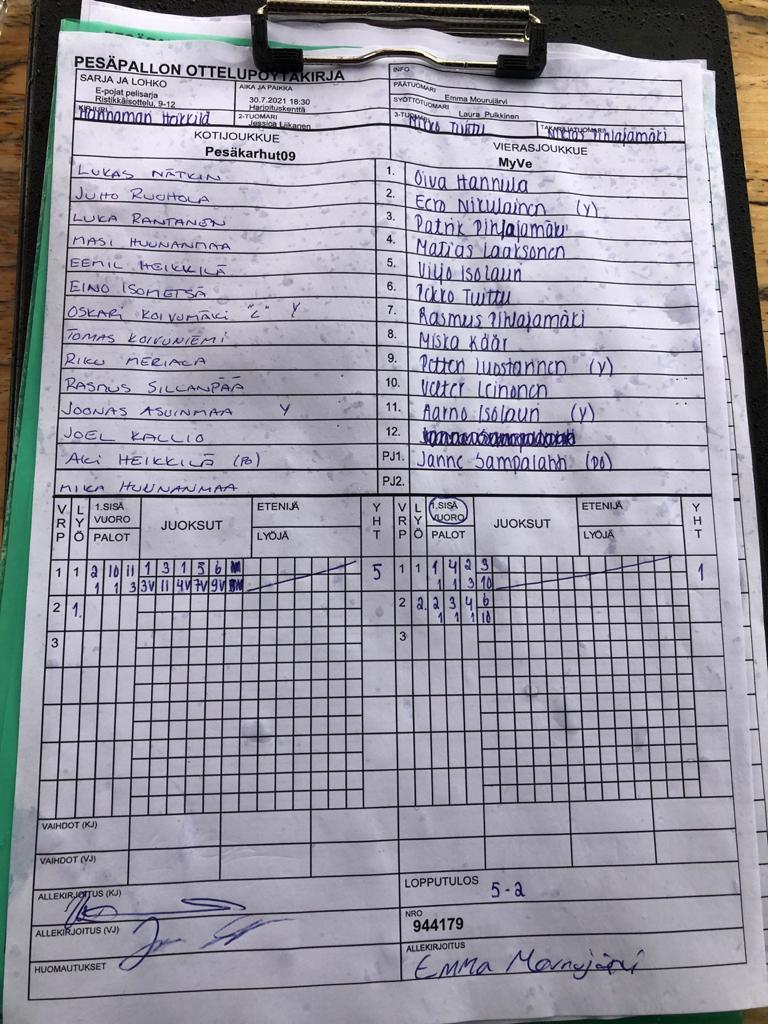 PESÄPALLON OTTELUPÖYTÄKIRJA
SARJA JA LOHKO
E-pojat pelisarja
Ristikkäisottelu, 9-12
AIKA JA PAIKKA
30.7.2021 18:30
Harjoituskenttä
2-TUOMARI
Jessica Liikanen
INFO
PÄÄTUOMARI
Emma Mourujärvi
SYÖTTÖTUOMARI
Laura Pulkkinen
Tuittu
Pihlajamäki
KOTIJOUKKUE
Pesäkarhut09
VIERASJOUKKUE
MyVe
LUKAS NÄTKIN 1. Oiva Hannula
JUHO RUOHOLA 2. Eero Nikulainen (V)
LUKA RANTANEN 3. Patrik Pihlajamäki
MASI HUUNANMAA 4. Matias Laaksonen
EEMIL HEIKKILÄ 5. Viljo Isolauri
EINO ISOMETSÄ 6. Pekko Tuittu
OSKARI KOIVUMÄKI "L" Y 7. Rasmus Pihlajamäki
TOMAS KOIVUNIEMI 8. Miska Käär
RIKU MERIALA 9. Petteri Luostarinen (V)
RASMUS SILLANPÄÄ 10. Valter Leinonen
JOONAS ASUINMAA Y 11. Aarno Isolauri (V)
JOEL KALLIO 12.
AKI HEIKKILÄ (PB) PJ1. Janne Sampalahti (PB)
MIKA HUUNANMAA PJ2.
VRP LYÖ 1.SISÄ VUORO PALOT JUOKSUT ETENIJÄ LYÖJÄ YHT
VRP LYÖ 1.SISÄ VUORO PALOT JUOKSUT ETENIJÄ LYÖJÄ YHT
1 1 2 10 11 1 3 1 5 6 5
1 1 3 3V 11 4V 7V 9V
1 1 1 4 2 3 1
1 1 3 10
2 1.
2 2. 2 3 4 6
1 1 1 10
3
3
VAIHDOT (KJ)
VAIHDOT (VJ)
ALLEKIRJOITUS (KJ)
ALLEKIRJOITUS (VJ)
HUOMAUTUKSET
LOPPUTULOS 5-2
NRO
944179
ALLEKIRJOITUS
Emma Mourujärvi